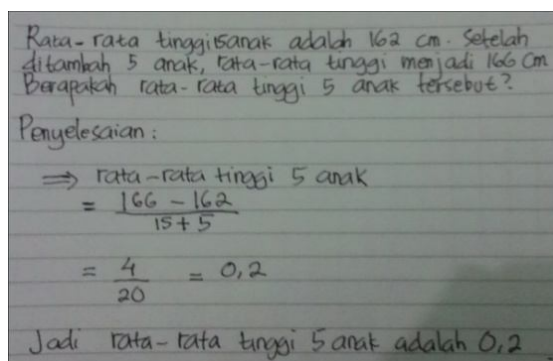 Rata-rata tinggi 15 anak adalah 162 cm. Setelah
ditambah 5 anak, rata-rata tinggi menjadi 166 Cm
Berapakah rata-rata tinggi 5 anak tersebut?
Penyelesaian :
⇒ rata-rata tinggi 5 anak
= 166 - 162
15 + 5
= 4 = 0,2
20
Jadi rata-rata tinggi 5 anak adalah 0,2